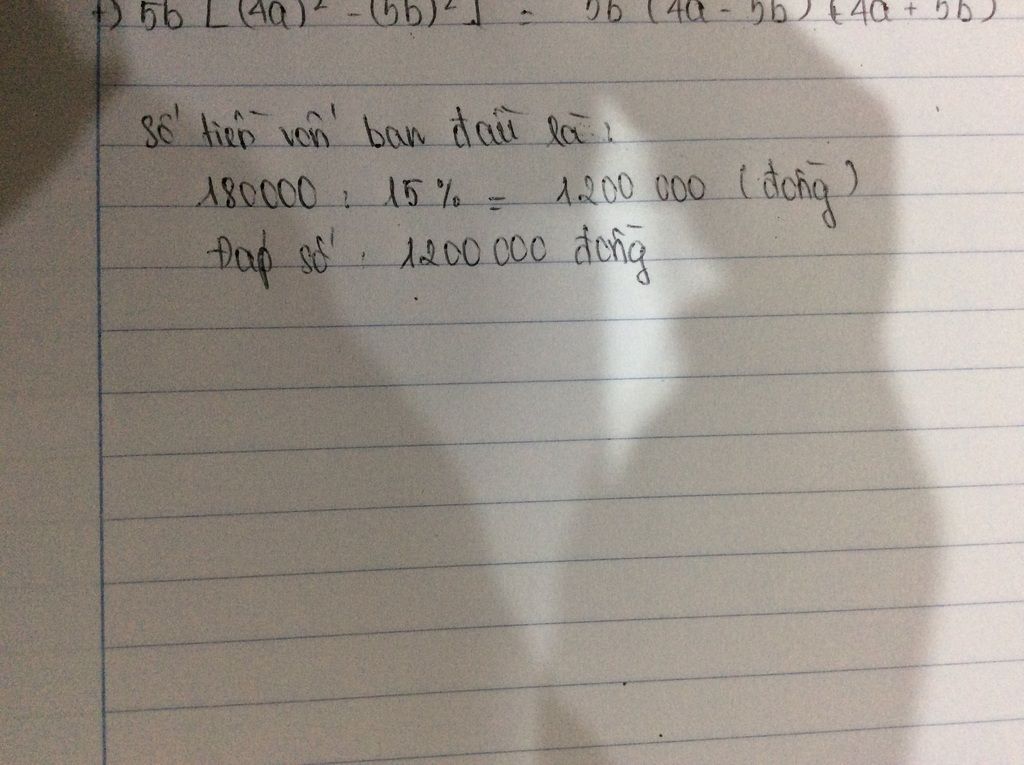 f) 5b [(4a)² - (5b)²] = 5b (4a - 5b) (4a + 5b)
Số tiền vốn ban đầu là:
180000 : 15% = 1200 000 (đồng)
Đáp số : 1200 000 đồng